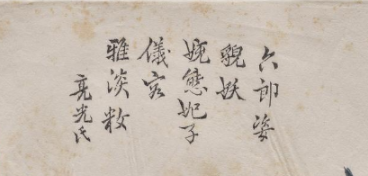 六郎姿
貌妖
婉態妃子
儀容
雅淡妝
亮光氏